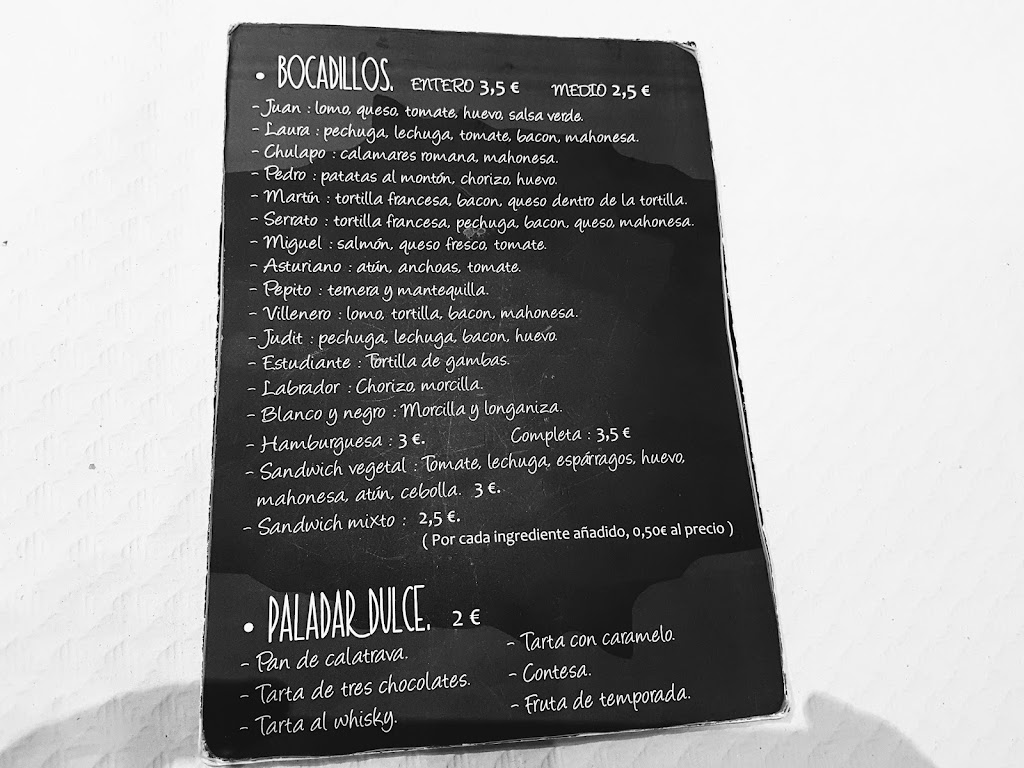 • BOCADILLOS. ENTERO 3,5 € MEDIO 2,5 €
- Juan : lomo, queso, tomate, huevo, salsa verde.
- Laura : pechuga, lechuga, tomate, bacon, mahonesa.
- Chulapo : calamares romana, mahonesa.
- Pedro : patatas al montón, chorizo, huevo.
- Martín : tortilla francesa, bacon, queso dentro de la tortilla.
- Serrato : tortilla francesa, pechuga, bacon, queso, mahonesa.
- Miguel : salmón, queso fresco, tomate.
- Asturiano : atún, anchoas, tomate.
- Pepito : ternera y mantequilla.
- Villenero : lomo, tortilla, bacon, mahonesa.
- Judit : pechuga, lechuga, bacon, huevo.
- Estudiante : Tortilla de gambas.
- Labrador : Chorizo, morcilla.
- Blanco y negro : Morcilla y longaniza.
- Hamburguesa : 3 €. Completa : 3,5 €
- Sandwich vegetal : Tomate, lechuga, espárragos, huevo,
mahonesa, atún, cebolla. 3 €.
- Sandwich mixto : 2,5 €.
( Por cada ingrediente añadido, 0,50€ al precio )
• PALADAR DULCE. 2 €
- Pan de calatrava.
- Tarta de tres chocolates.
- Tarta al whisky.
- Tarta con caramelo.
- Contesa.
- Fruta de temporada.